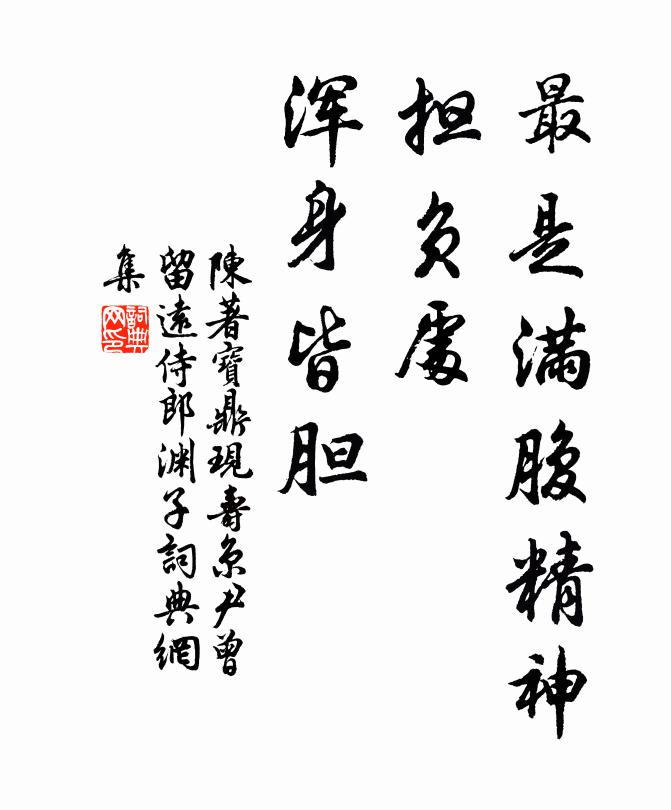 最是满腹精神
担负處
浑身皆胆
陳著寶鼎現壽京尹曾
留遠侍郎渊子詞典網
集
詞典
网印